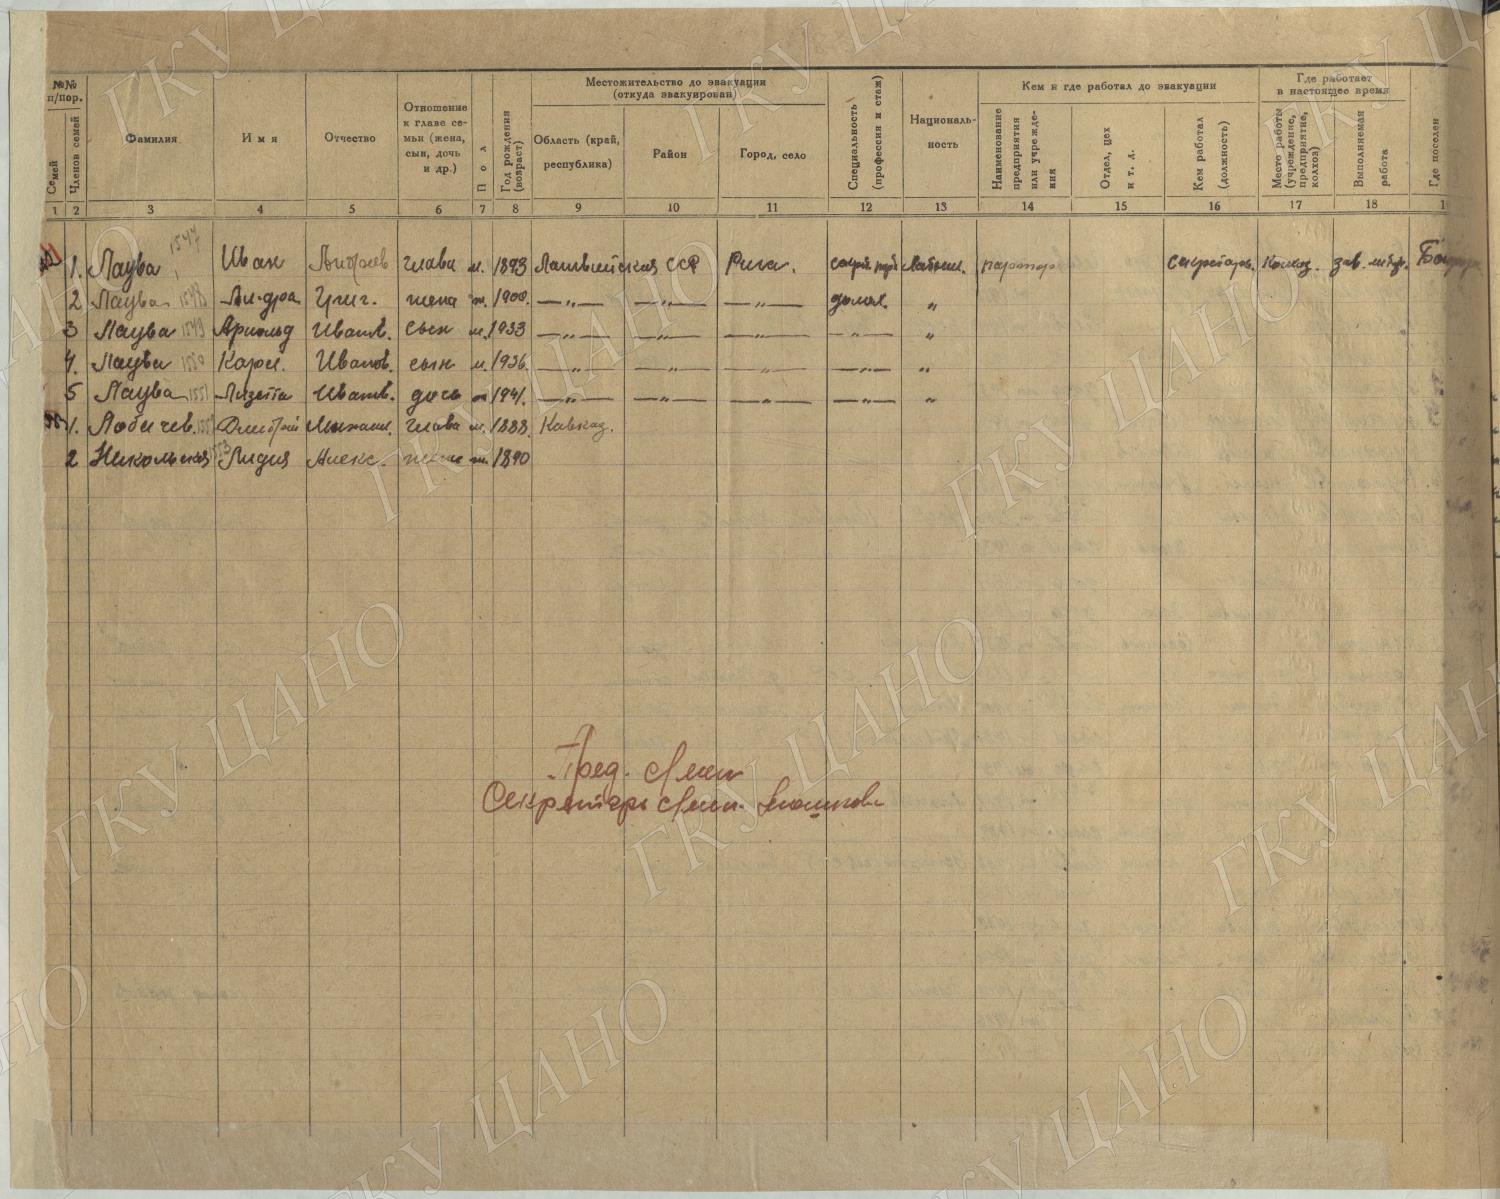 №№ п/пор.
Семей
Членов семей
Фамилия
Имя
Отчество
Отношение к главе семьи (жена, сын, дочь и др.)
Пол
Год рождения (возраст)
Местожительство до эвакуации (откуда эвакуирован)
Область (край, республика)
Район
Город, село
Специальность (профессия и стаж)
Националь-ность
Кем и где работал до эвакуации
Наименование предприятия или учрежде-ния
Отдел, цех и т. д.
Кем работал (должность)
Где работает в настоящее время
Место работы (учреждение, предприятие, колхоз)
Выполняемая работа
Где поселен
1 2 3 4 5 6 7 8 9 10 11 12 13 14 15 16 17 18
1. Лаува 1547 Иван глава м. 1893 Латвийская ССР Рига. парторг секретарь.
2 Лаува 1548 Григ. жена ж. 1900. — „ — — „ — — „ — домох. „
3 Лаува 1549 Арнольд Иванов. сын м. 1933 — „ — — „ — — „ — — „ — „
4. Лаува 1550 Карл. Иванов. сын м. 1936. — „ — — „ — — „ — — „ — „
5 Лаува 1551 Лизетта Иванов. дочь ж 1941. — „ — — „ — — „ — — „ — „
1. Дмитрий Михаил. глава м. 1888. Кавказ.
2 Никольская 1553 Лидия Алекс. жена ж. 1890
Пред.
Секретарь
ГКУ ЦАНО